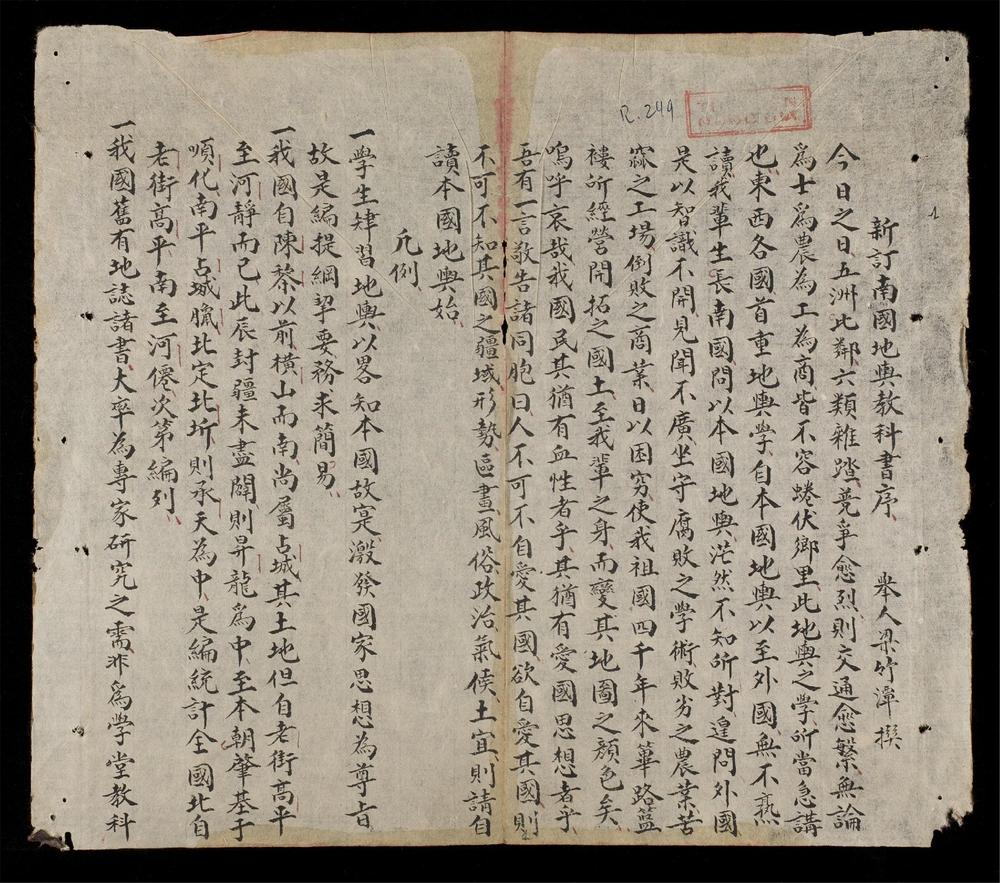 R.249
1
新訂南國地輿教科書序　舉人梁竹潭撰
今日之日五洲比鄰六類雜踏競爭愈烈則交通愈繁無論
爲士爲農為工為商皆不容蜷伏鄉里此地輿之學所當急講
也東西各國首重地輿學自本國地輿以至外國無不熟
讀我輩生長南國問以本國地輿茫然不知所對遑問外國
是以智識不開見聞不廣坐守腐敗之學術敗劣之農業苦
窳之工場倒敗之商業日以困窮使我祖國四千年來篳路籃
褸所經營開拓之國土至我輩之身而變其地圖之顏色矣
嗚呼哀哉我國民其猶有血性者乎其猶有愛國思想者乎
吾有一言敬告諸同胞曰人不可不自愛其國欲自愛其國則
不可不知其國之疆域形勢區畫風俗政治氣候土宜則請自
讀本國地輿始
凡例
一學生肄習地輿以畧知本國故寔激發國家思想為尊旨
故是編提綱挈要務求簡易
一我國自陳黎以前橫山而南尚屬占城其土地但自老街高平
至河靜而已此辰封疆未盡闢則昇龍爲中至本朝肇基于
順化南平占城臘北定北圻則承天為中是編統計全國北自
老街高平南至河僊次第編列
一我國舊有地誌諸書大率為專家研究之需非爲学堂教科